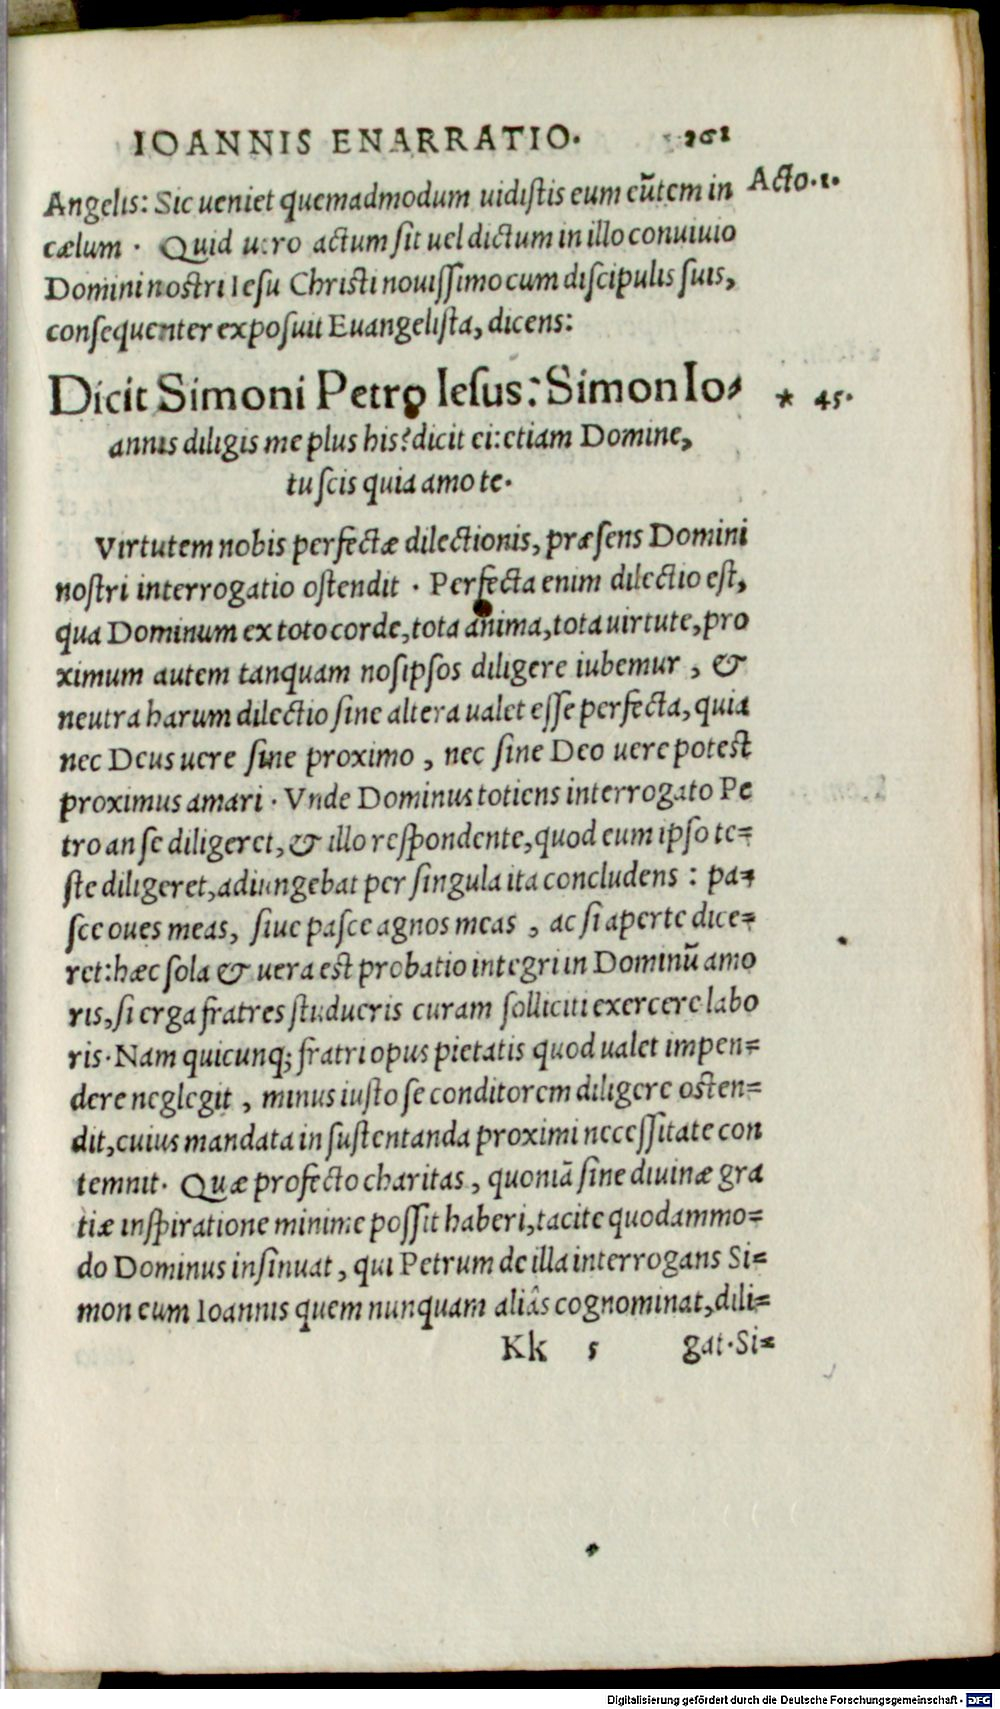 IOANNIS ENARRATIO. 261
Angelis: Sic ueniet quemadmodum uidistis eum eūtem in Acto.1.
cælum . Quid uero actum sit uel dictum in illo conuiuio
Domini nostri Iesu Christi nouissimo cum discipulis suis,
consequenter exposuit Euangelista, dicens:
Dicit Simoni Petro Iesus: Simon Io- * 45.
annis diligis me plus his? dicit ei: etiam Domine,
tu scis quia amo te.
Virtutem nobis perfectæ dilectionis, præsens Domini
nostri interrogatio ostendit . Perfecta enim dilectio est,
qua Dominum ex toto corde, tota anima, tota uirtute, pro
ximum autem tanquam nosipsos diligere iubemur , &
neutra harum dilectio sine altera ualet esse perfecta, quia
nec Deus uere sine proximo , nec sine Deo uere potest
proximus amari . Vnde Dominus totiens interrogato Pe
tro an se diligeret, & illo respondente, quod eum ipso te=
ste diligeret, adiungebat per singula ita concludens : pa=
sce oues meas, siue pasce agnos meas , ac si aperte dice=
ret: hæc sola & uera est probatio integri in Dominū amo
ris, si erga fratres studueris curam solliciti exercere labo
ris. Nam quicunq; fratri opus pietatis quod ualet impen=
dere neglegit , minus iusto se conditorem diligere osten=
dit, cuius mandata in sustentanda proximi necessitate con
temnit. Quæ profecto charitas , quoniā sine diuinæ gra
tiæ inspiratione minime possit haberi, tacite quodammo=
do Dominus insinuat , qui Petrum de illa interrogans Si=
mon eum Ioannis quem nunquam aliâs cognominat, dili=
Kk 5 gat. Si=
Digitalisierung gefördert durch die Deutsche Forschungsgemeinschaft - DFG